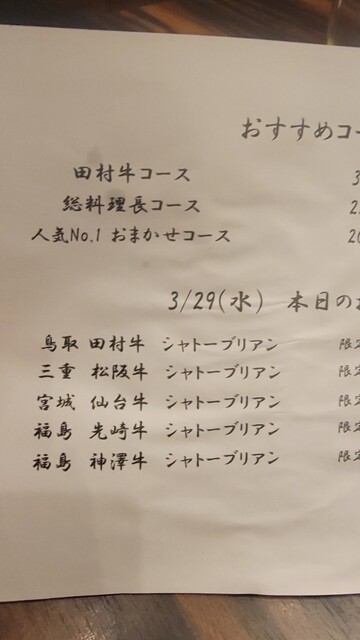 おすすめコー
田村牛コース 3
総料理長コース 2
人気No.1 おまかせコース 20
3/29(水) 本日のお
鳥取 田村牛 シャトーブリアン 限定
三重 松阪牛 シャトーブリアン 限定
宮城 仙台牛 シャトーブリアン 限定
福島 先崎牛 シャトーブリアン 限定
福島 神澤牛 シャトーブリアン 限定